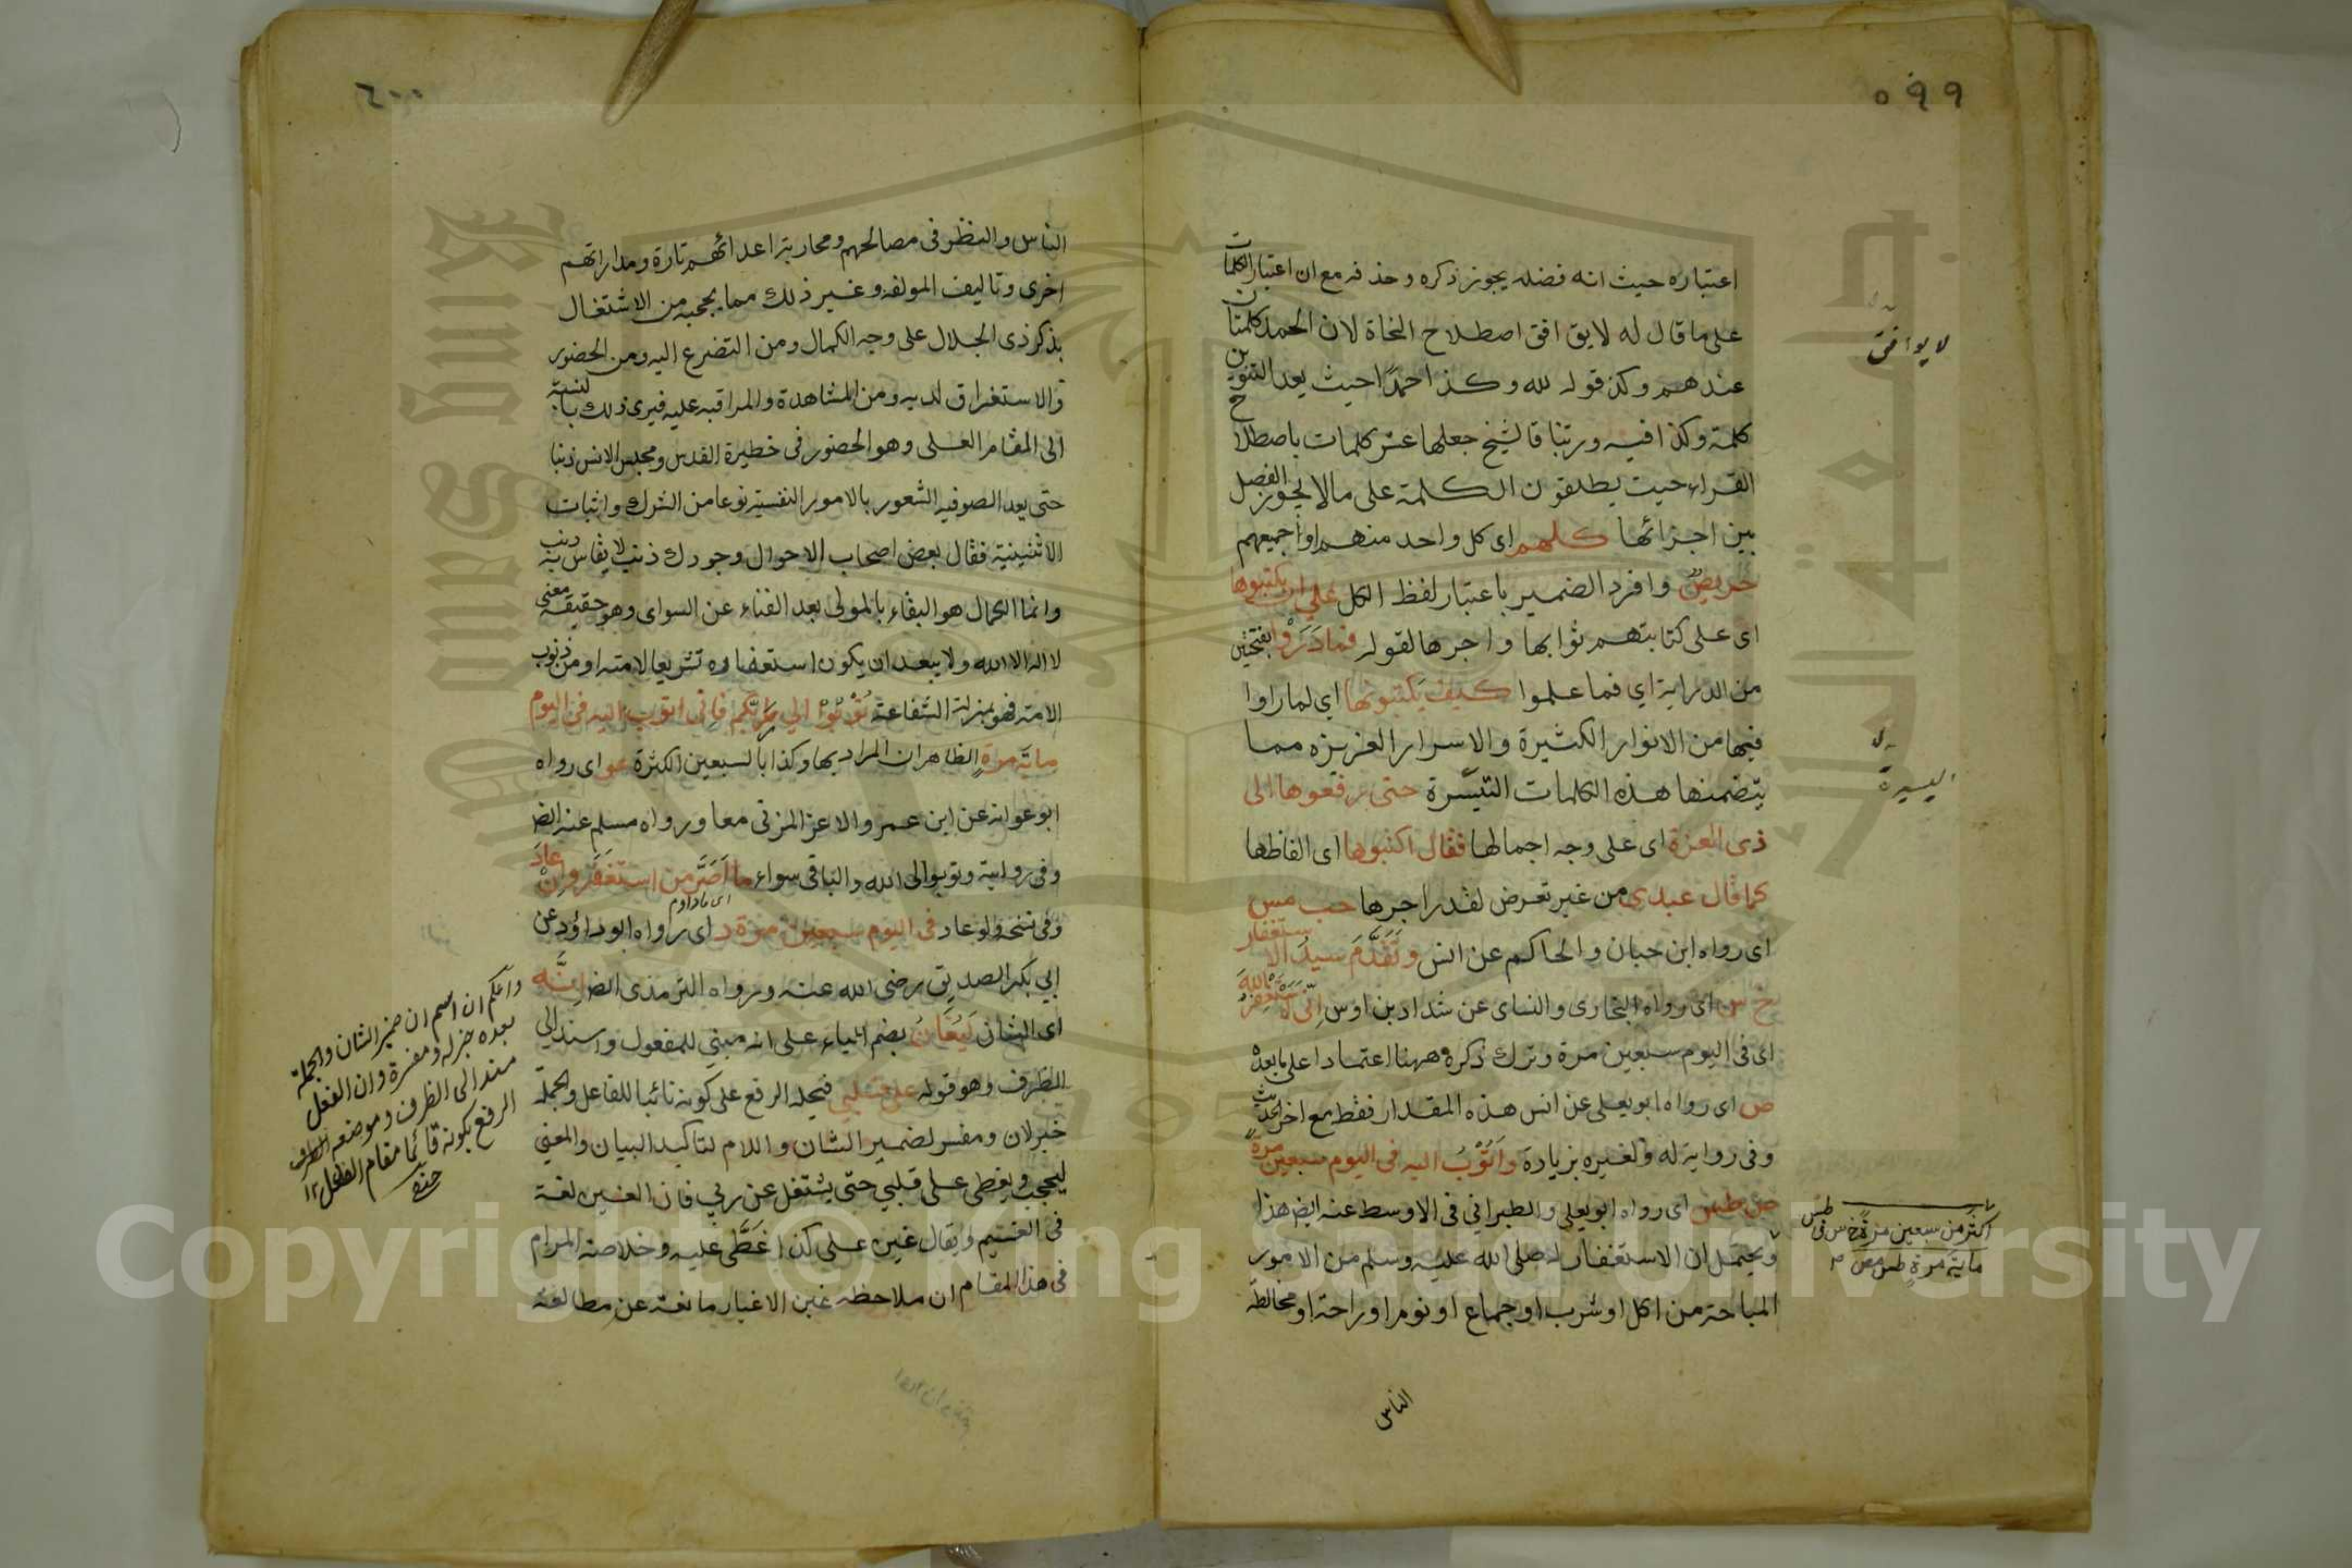 ٥٩٩
اعتباره حيث انه فضله يجوز ذكره وحذفه مع ان اعتبار الكلمات
على ما قال له لايق افق اصطلاح النحاة لان الحمد كلمتان
عندهم وكذ قوله لله وكذا حمدا حيث يعد التنوين
كلمة وكذا فيه وربنا قالشيخ جعلها عشر كلمات باصطلاح
القراء حيث يطلقون الكلمة على مالا يجوز الفصل
بين اجزائها كلهم اى كل واحد منهم او اجميعهم
حريص وافرد الضمير باعتبار لفظ الكل على ان يكتبوها
اى على كتابتهم ثوابها واجرها لقوله فما دروا بفتحتين
من الدراية اي فما علموا كيف يكتبونها اي لما راوا
فيها من الانوار الكثيرة والاسرار العزيزه مما
يتضمنها هذه الكلمات التيسرة حتى رفعوها الى
ذى العزة اى على وجه اجمالها فقال اكتبوها اى الفاظها
كما قال عبدى من غير تعرض لقدر اجرها حب مس
اى رواه ابن حبان والحاكم عن انس وتقدم سيد الاستغفار
خ س اى رواه البخارى والنساى عن شداد بن اوس انى لاستغفر الله
اى فى اليوم سبعين مرة وترك ذكره ههنا اعتمادا على ما بعده
ص اى رواه ابو يعلى عن انس هذه المقدار فقط مع اخر الحديث
وفى رواية له ولغيره بزيادة واتوب اليه فى اليوم سبعين مرة
ص طس اى رواه ابو يعلى والطبرانى فى الاوسط عنه ايضا هذا
ويحتمل ان الاستغفار له صلى الله عليه وسلم من الامور
المباحة من اكل او شرب او جماع او نوم او راحة او مخالطة
الناس
لا يوافق
اليسيرة
طس
اكثر من سبعين مرة خ س ق
ماية مرة طس مص
٦٠٠
الناس والنظر فى مصالحهم ومحاربة اعدائهم تارة ومداراتهم
اخرى وتاليف المولفة وغير ذلك مما يحجبه من الاشتغال
بذكر ذى الجلال على وجه الكمال ومن التضرع اليه ومن الحضور
والاستغراق لديه ومن المشاهدة والمراقبه عليه فيرى ذلك بالنسبة
الى المقام العلى وهو الحضور فى خطيرة القدس ومجلس الانس ذنبا
حتى يعد الصوفيه الشعور بالامور النفسية نوعا من الشرك واثبات
الاثنينية فقال بعض اصحاب الاحوال وجودك ذنب لا يقاس به ذنب
وانما الكمال هو البقاء بالمولى بعد الفناء عن السواى وهو حقيقة معنى
لا اله الا الله ولا يبعد ان يكون استغفاره تشريعا لامته او من ذنوب
الامته فهو بمنزلة الشفاعة توبوا الي ربكم فانى اتوب اليه فى اليوم
ماية مرة الظاهر ان المراد بها وكذا بالسبعين الكثرة عو اى رواه
ابو عوانه عن ابن عمر والاغر المزنى معا ورواه مسلم عنه ايضا
وفى رواية وتوبوا الى الله والباقى سواء ما اصر من استغفر وان عاد
وفى نسخة ولو عاد فى اليوم سبعين مرة د اى رواه ابو داؤد عن
اى ما داوم
ابي بكر الصديق رضى الله عنه ورواه الترمذى ايضا انه
اى الشان ليغان بضم الياء على انه مبني للمفعول واسند الى
الظرف وهو قوله على قلبي فيحله الرفع على كونه نائبا للفاعل والجملة
خبر لان ومفسر لضمير الشان واللام لتاكيد البيان والمعنى
ليحجب ويغطى على قلبي حتى يشتغل عن ربي فان الغين لغة
فى الغيم ويقال غين على كذا غطى عليه وخلاصة المرام
فى هذا المقام ان ملاحظه غين الاغيار مانعة عن مطالعة
واعلم ان اسم ان ضمير الشان والجملة
بعده خبر له ومفسرة وان الفعل
مسند الى الظرف وموضعه
الرفع بكونه قائما مقام الفاعل ١٢